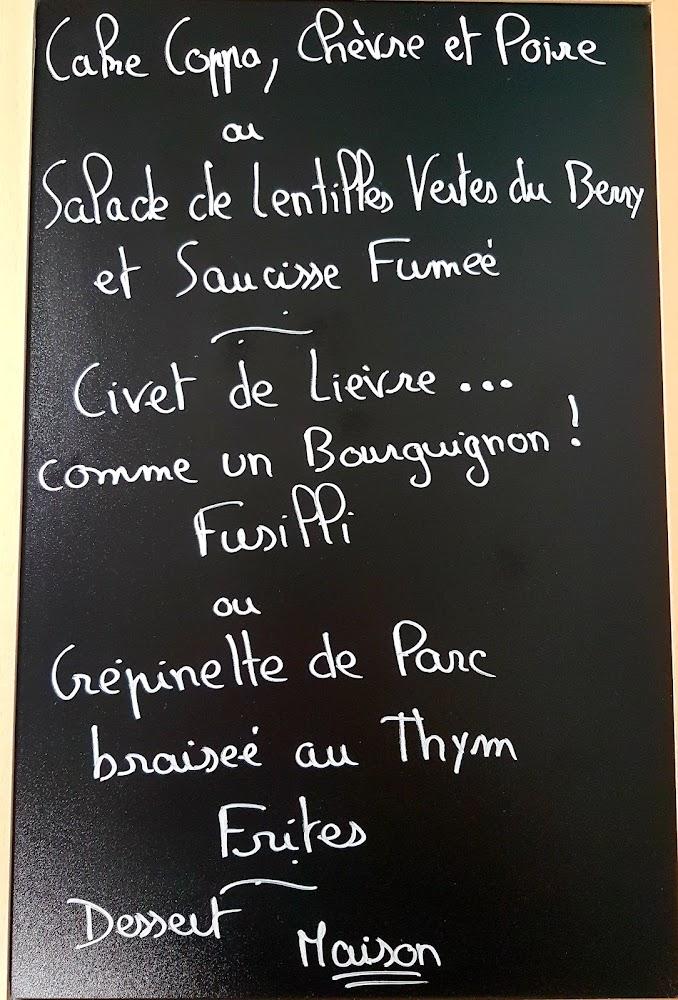 Cake Coppa, Chèvre et Poire
ou
Salade de Lentilles Vertes du Berry
et Saucisse Fumeé
Civet de Lièvre ...
comme un Bourguignon !
Fusilli
ou
Crépinette de Parc
braiseé au Thym
Frites
Dessert
Maison